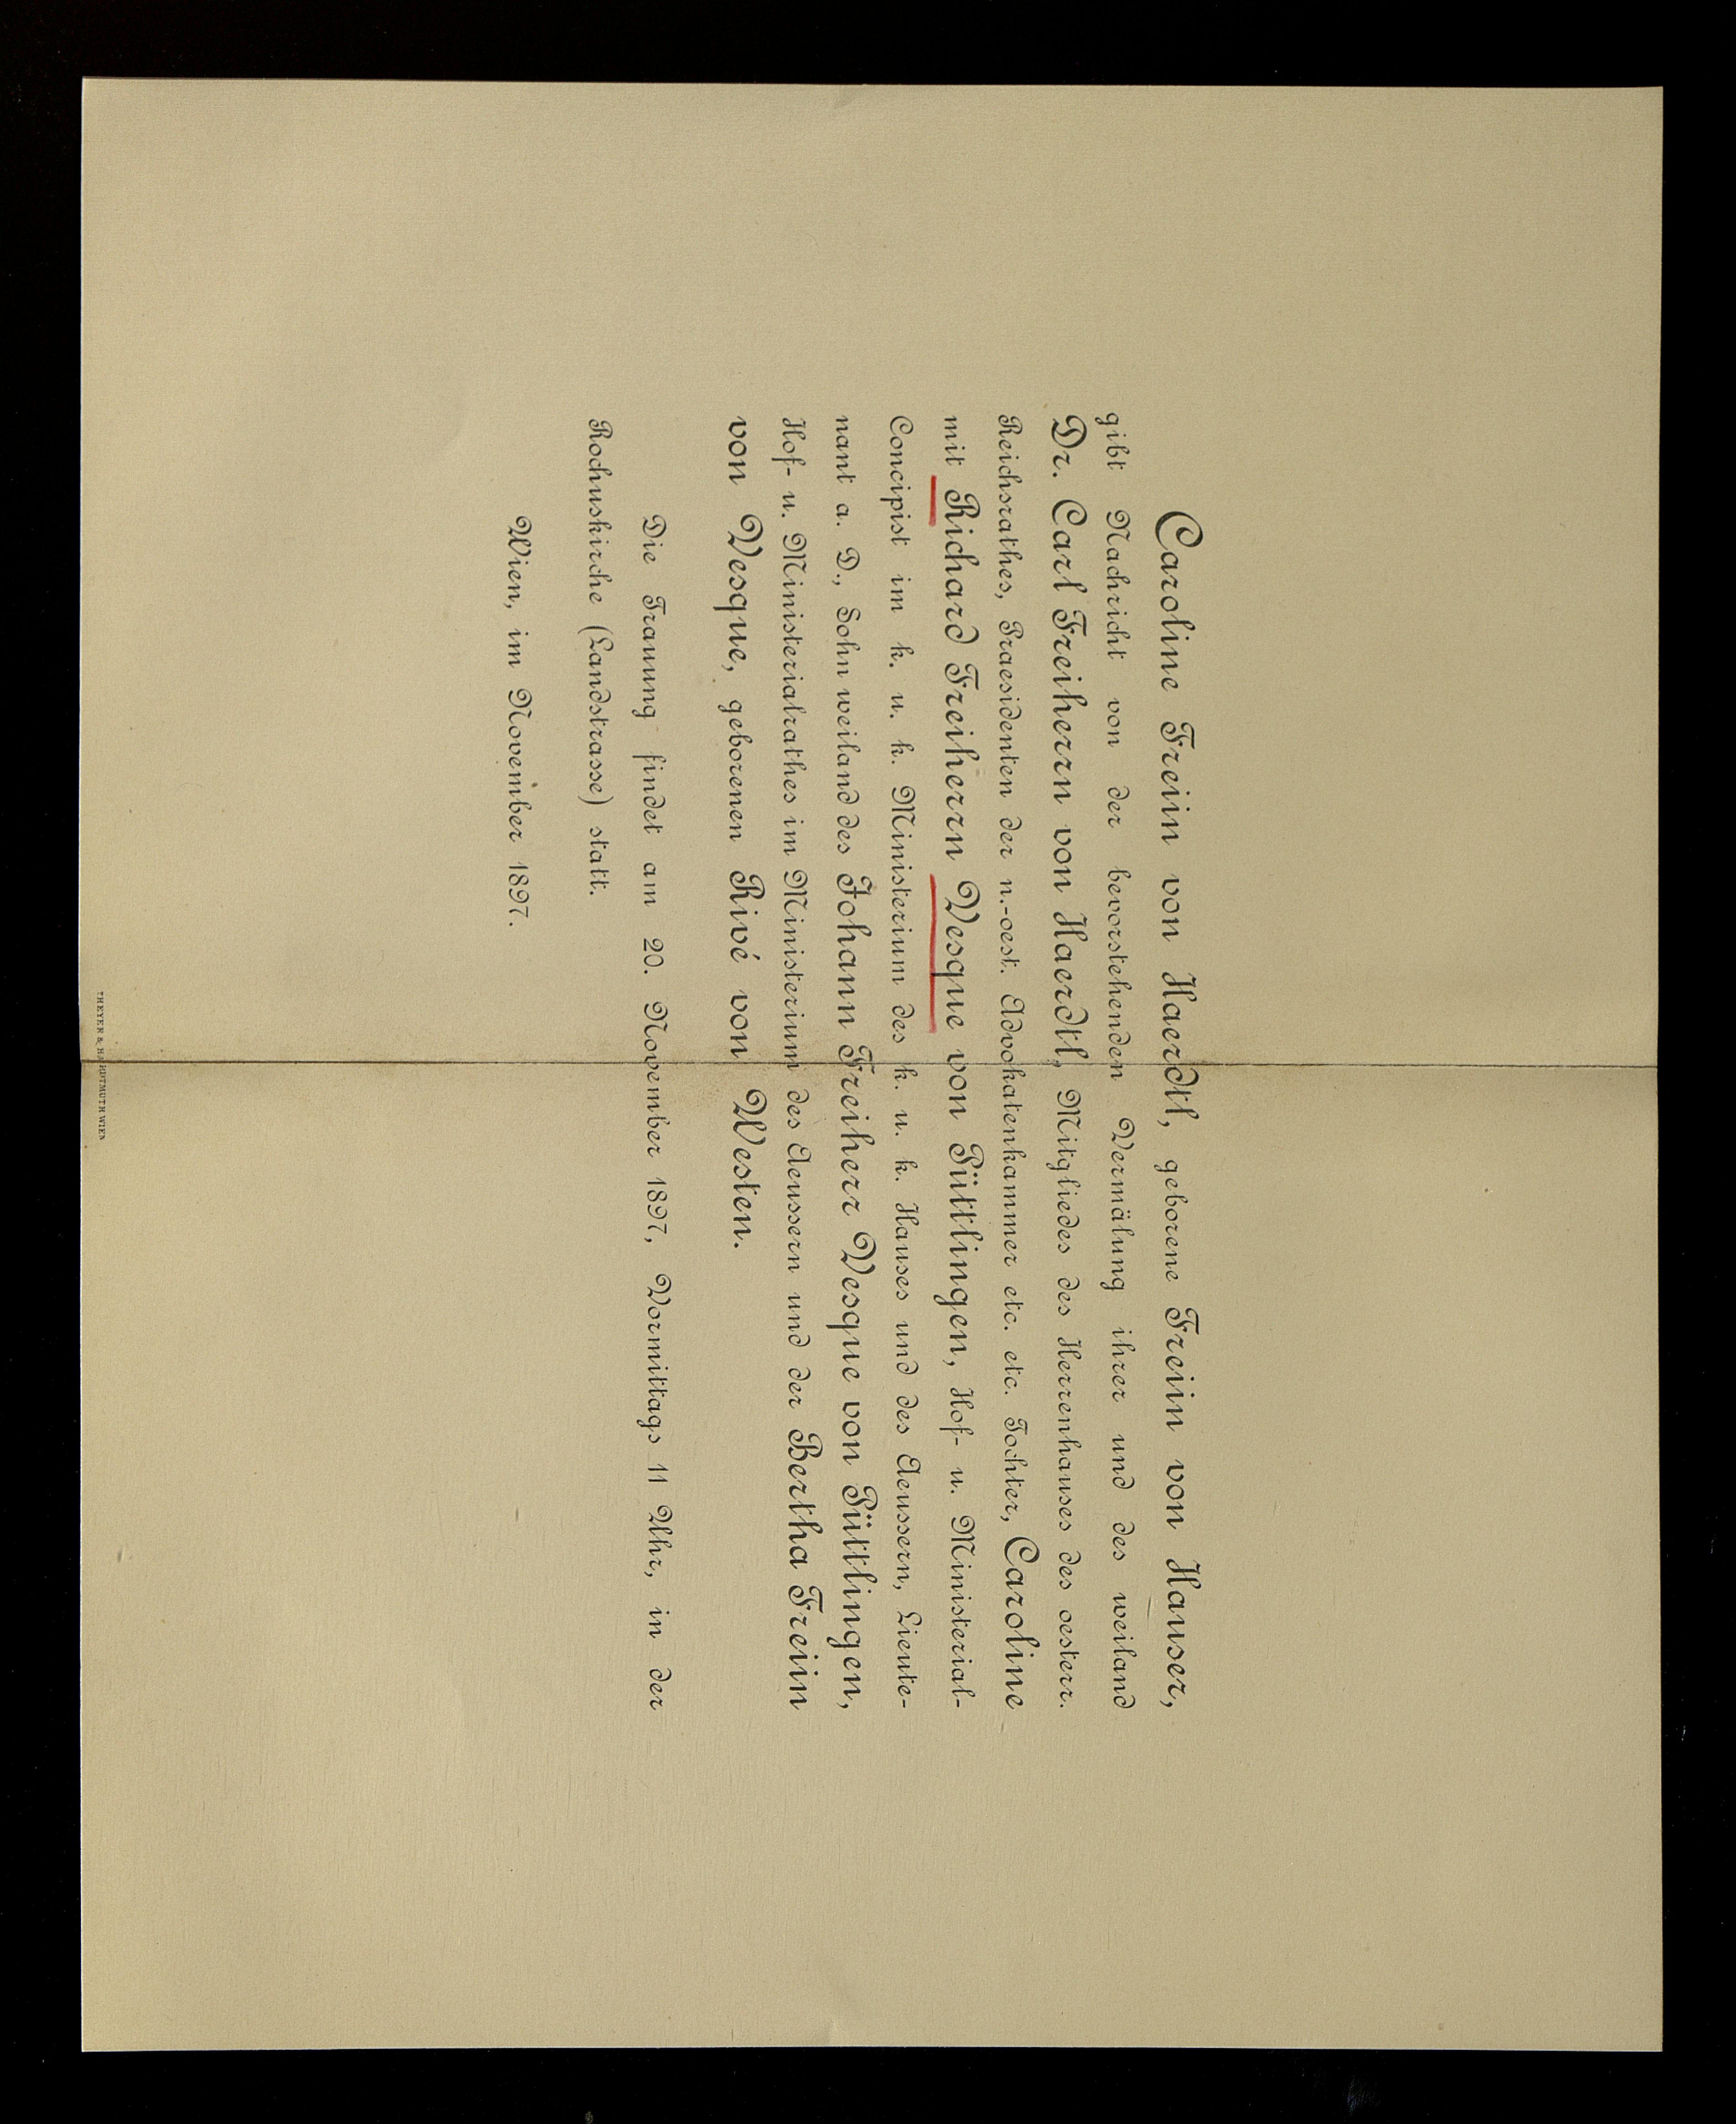 Caroline Freiin von Haerdtl, geborene Freiin von Hauser,
gibt Nachricht von der bevorstehenden Vermälung ihrer und des weiland
Dr. Carl Freiherrn von Haerdtl, Mitgliedes des Herrenhauses des oesterr.
Reichsrathes, Praesidenten der n.-oest. Advokatenkammer etc. etc. Tochter, Caroline
mit Richard Freiherrn Vesque von Püttlingen, Hof- u. Ministerial-
Concipist im k. u. k. Ministerium des k. u. k. Hauses und des Aeussern, Lieute-
nant a. D., Sohn weiland des Johann Freiherr Vesque von Püttlingen,
Hof- u. Ministerialrathes im Ministerium des Aeussern und der Bertha Freiin
von Vesque, geborenen Rivé von Westen.
Die Trauung findet am 20. November 1897, Vormittags 11 Uhr, in der
Rochuskirche (Landstrasse) statt.
Wien, im November 1897.
THEYER & HARDTMUTH WIEN